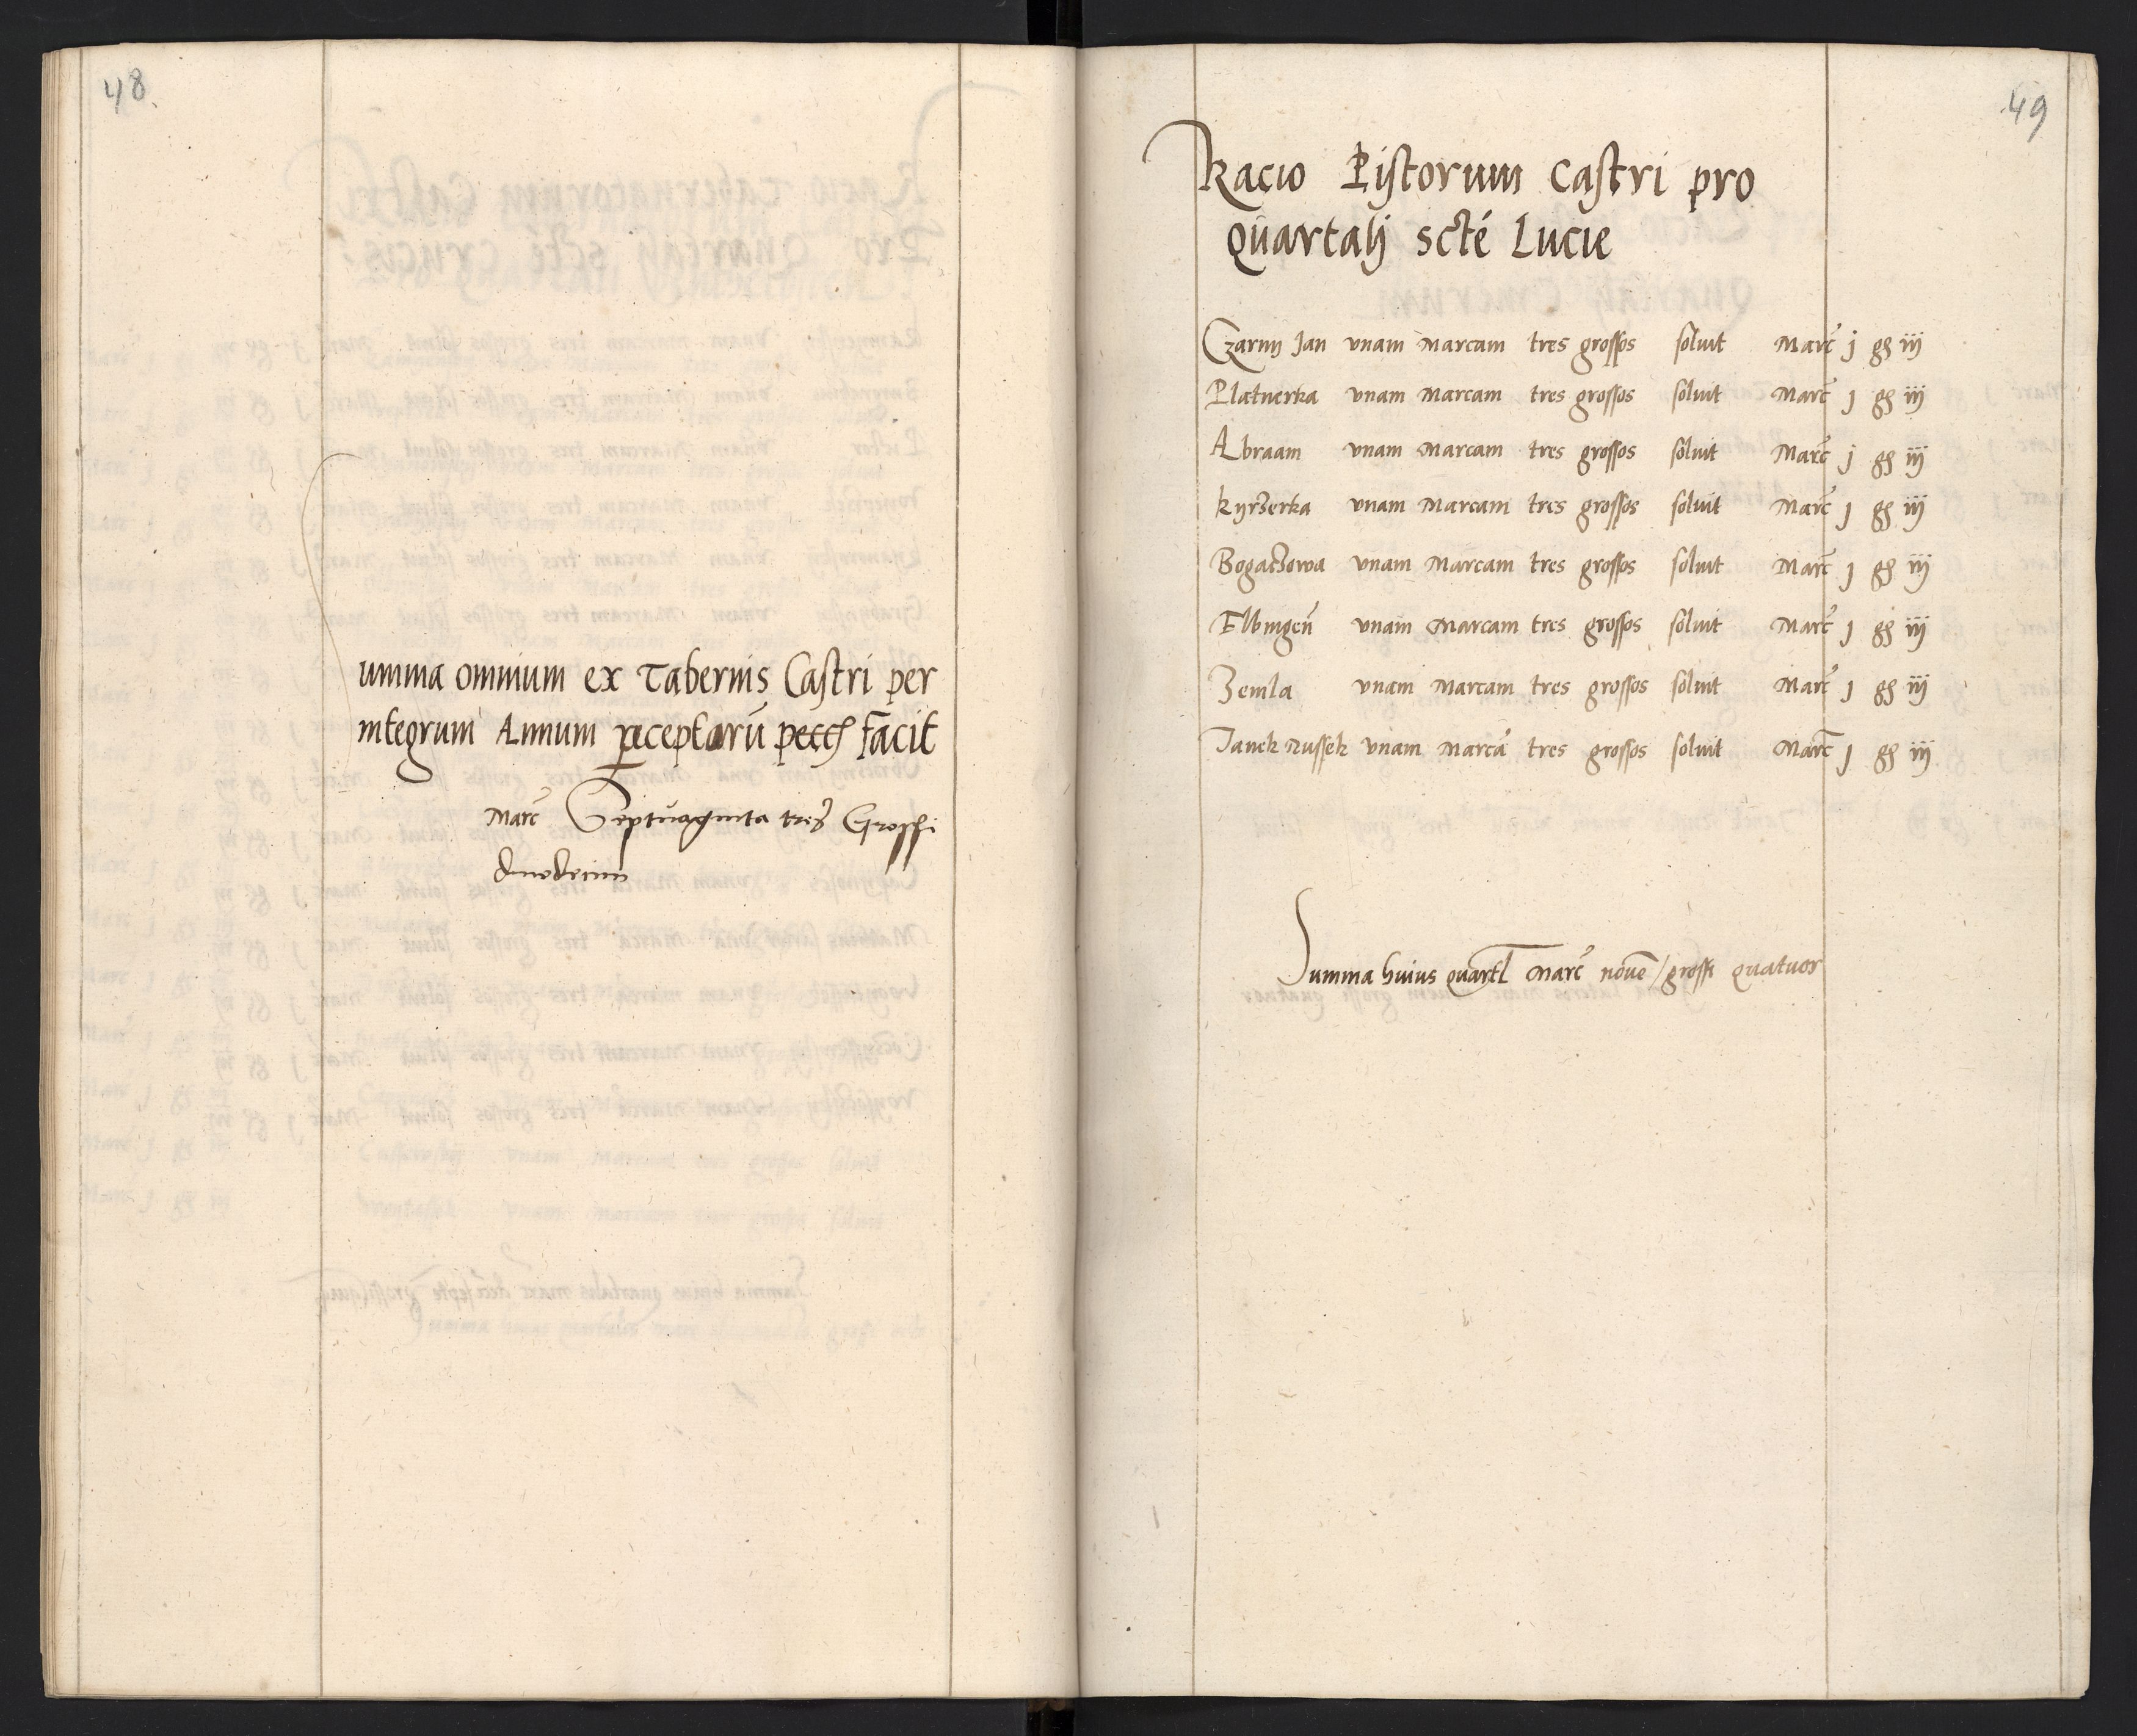 48
Summa omnium ex Tabernis Castri per
integrum Annum perceptarū pecc facit
Marc Septuaginta tres Grossi
duodecim
49
Racio Pistorum Castri pro
Quartalj scté Lucie
Czarny Jan vnam Marcam tres grossos soluit Marc j gs iij
Platnerka vnam Marcam tres grossos soluit Marc j gs iij
Abraam vnam Marcam tres grossos soluit Marc j gs iij
Kyrzerka vnam Marcam tres grossos soluit Marc j gs iij
Bogaczowa vnam Marcam tres grossos soluit Marc j gs iij
Elbingen vnam Marcam tres grossos soluit Marc j gs iij
Zemla vnam Marcam tres grossos soluit Marc j gs iij
Janek Russek vnam Marcā tres grossos soluit Marc j gs iij
Summa huius quartl Marc nouē / grossi quatuor